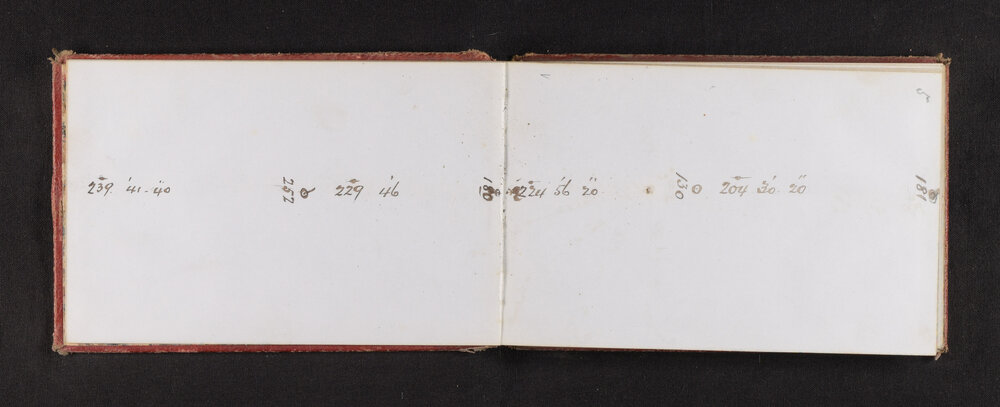 5
239° 41' 40" 252 229° 46' 180 224° 56' 20" 130 204° 30' 20" 181